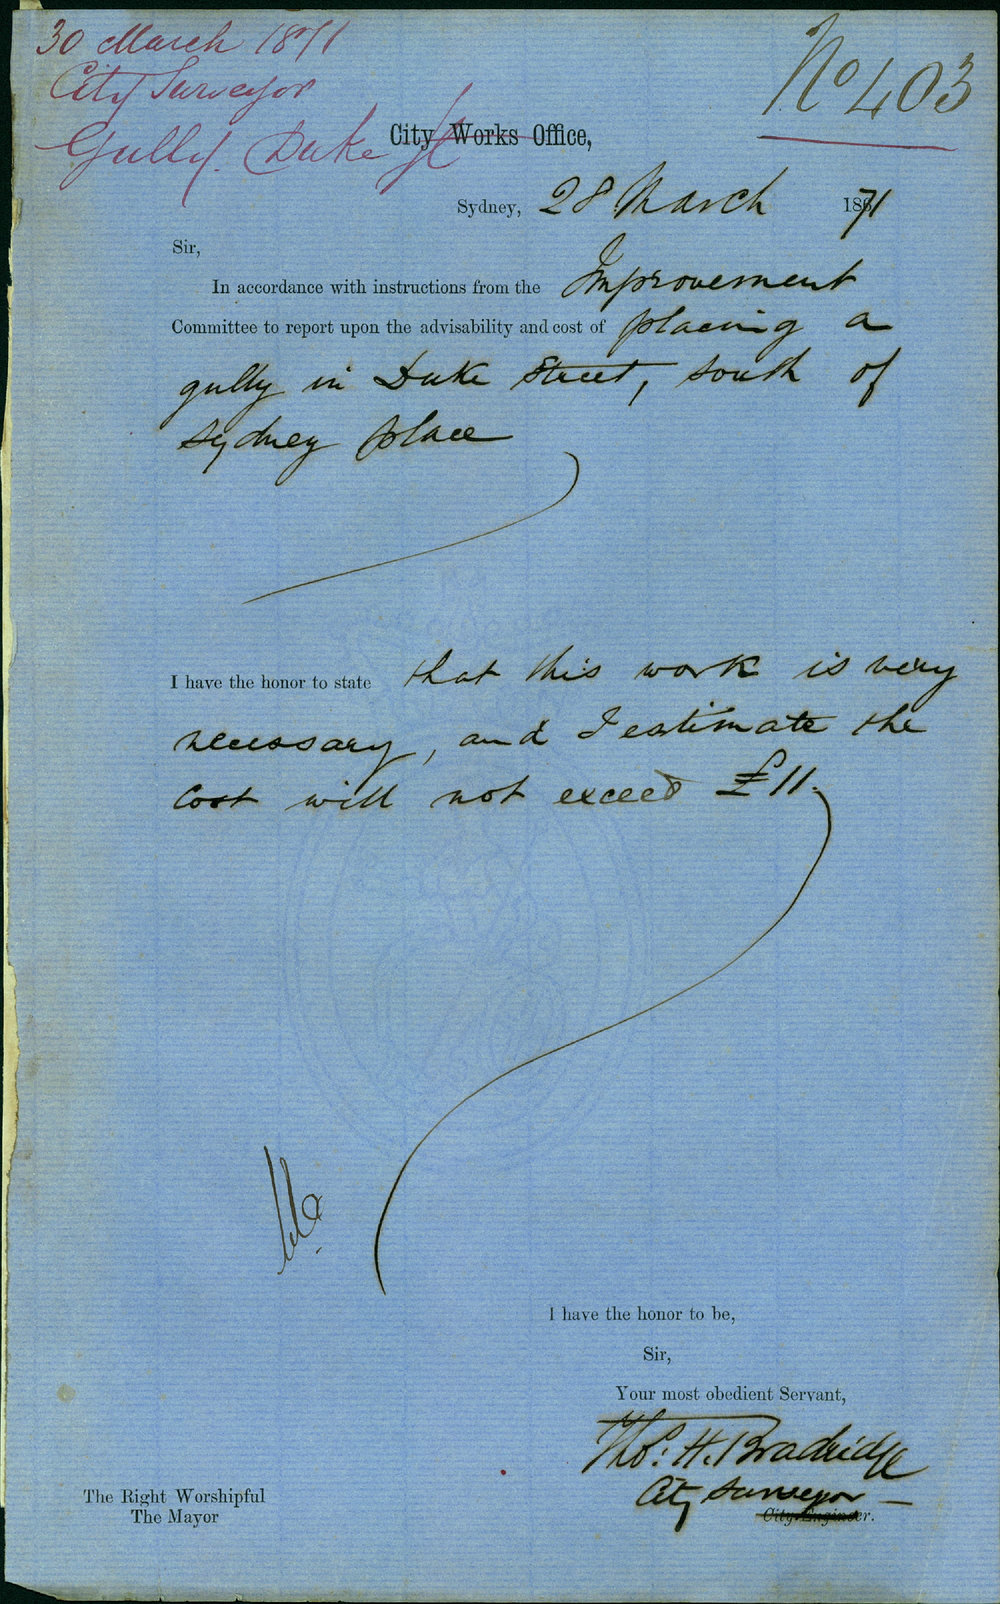 30 March 1871
City Surveyor
Gully. Duke St
No 403
City Works Office,
Sydney, 28 March 1871
Sir,
In accordance with instructions from the Improvement
Committee to report upon the advisability and cost of placing a
gully in Duke Street, south of
Sydney place
I have the honor to state that this work is very
necessary, and I estimate the
cost will not exceed £11.
I have the honor to be,
Sir,
Your most obedient Servant,
Thos. H. Bradridge
City Surveyor
City Engineer.
The Right Worshipful
The Mayor